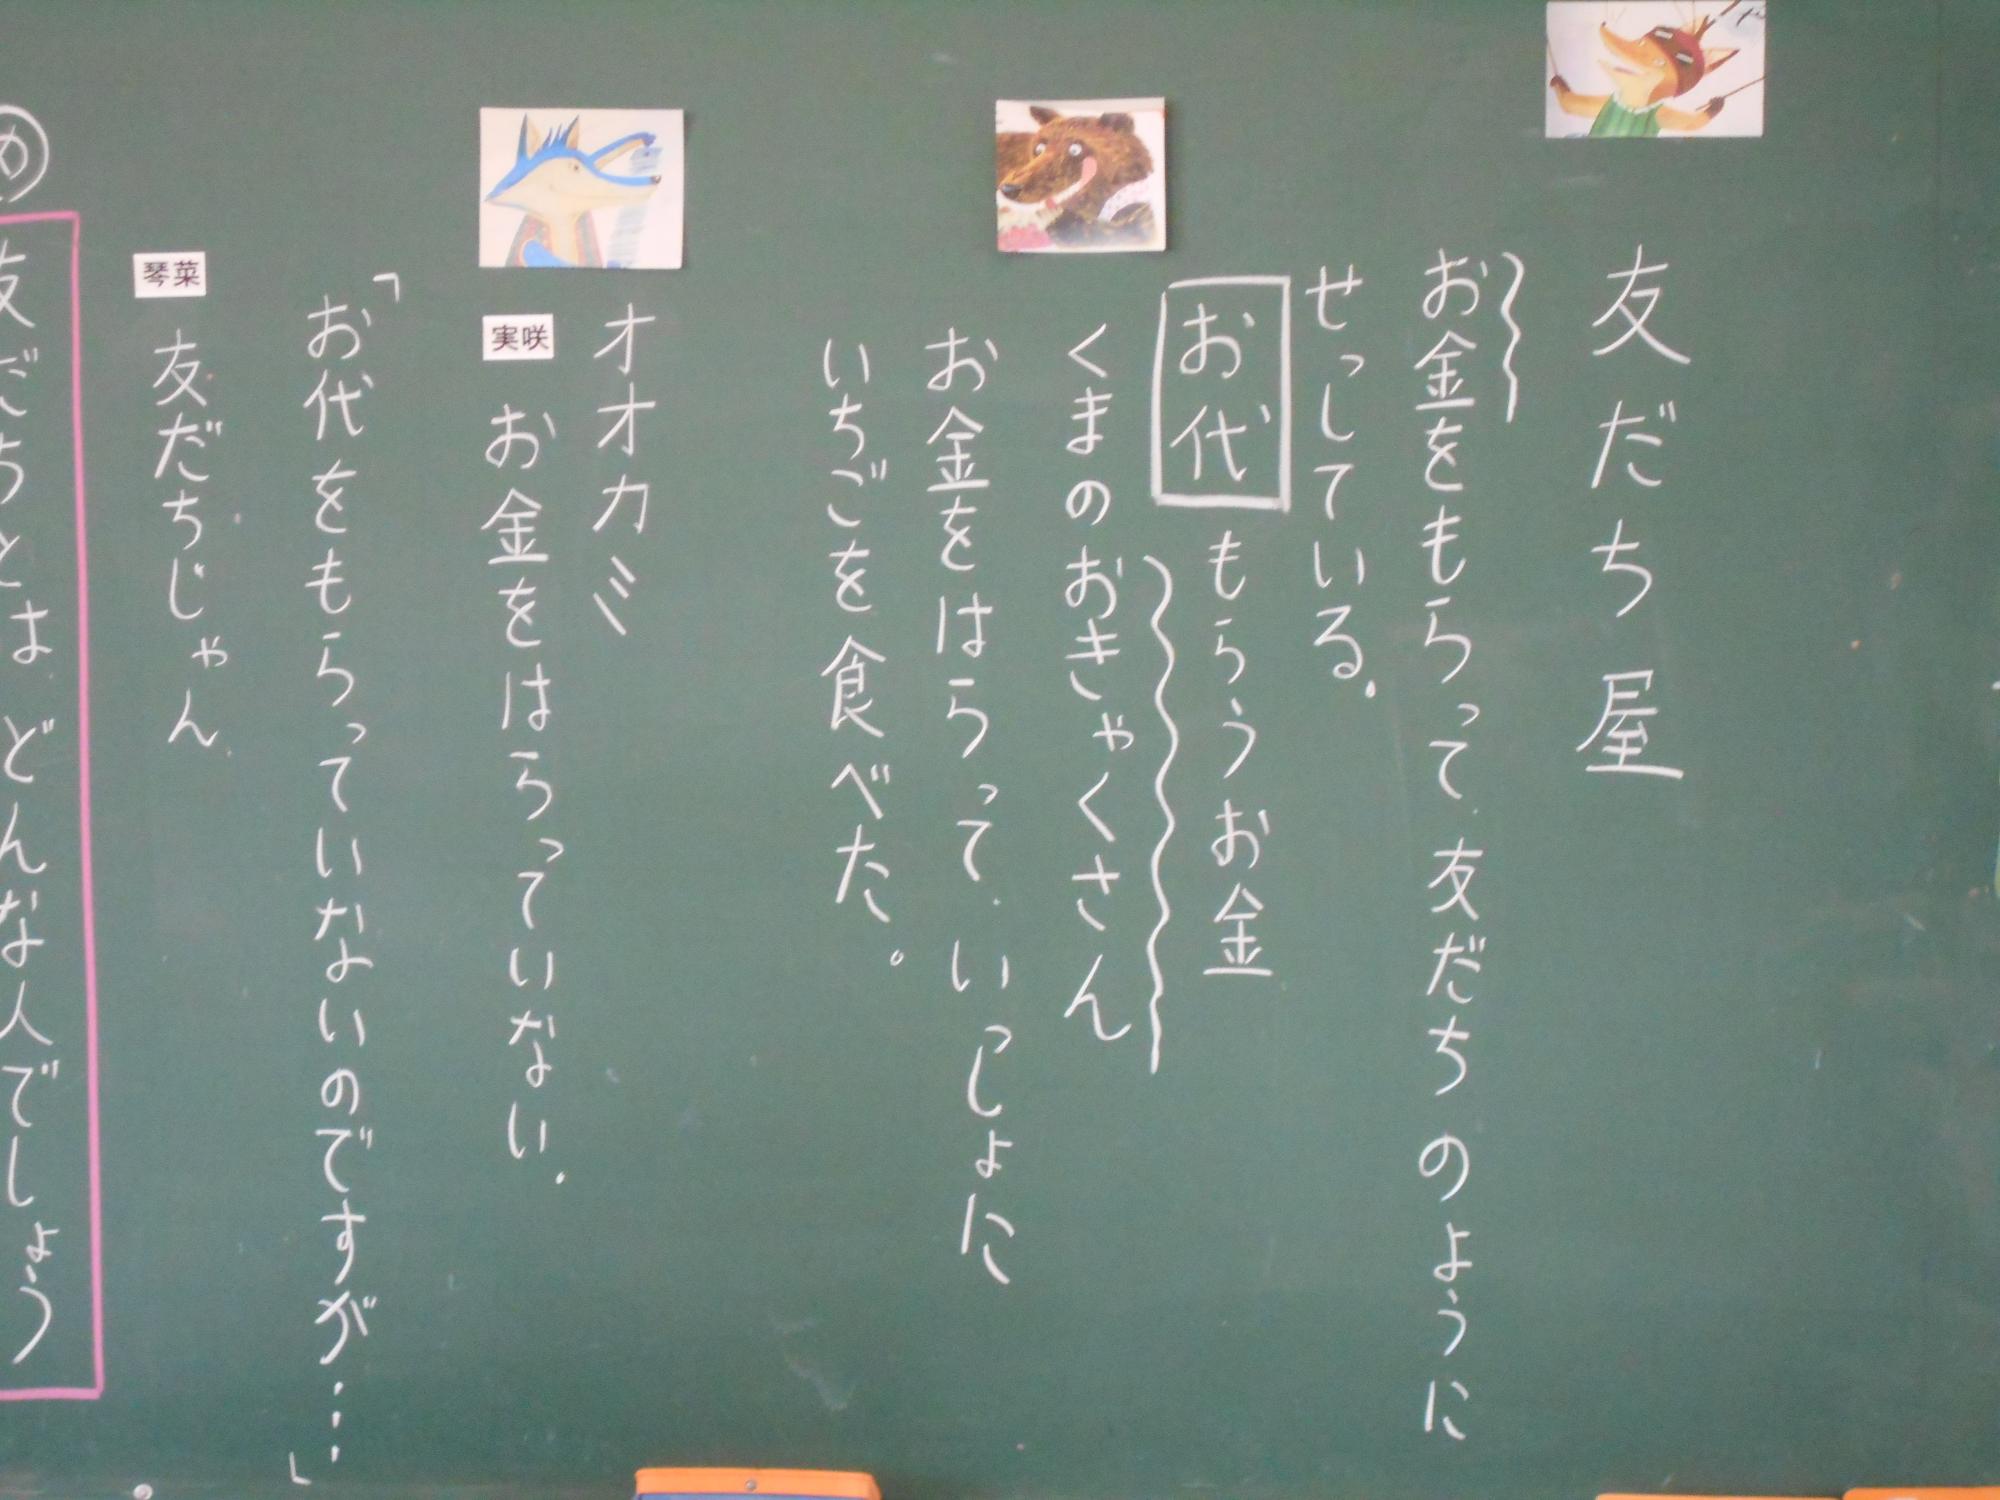 友だち屋
お金をもらって、友だちのように
せっしている。
お代 もらうお金
くまのおきゃくさん
お金をはらって、いっしょに
いちごを食べた。
オオカミ
実咲 お金をはらっていない。
「お代をもらっていないのですが……」
琴菜 友だちじゃん。
め
友だちとは、どんな人でしょう